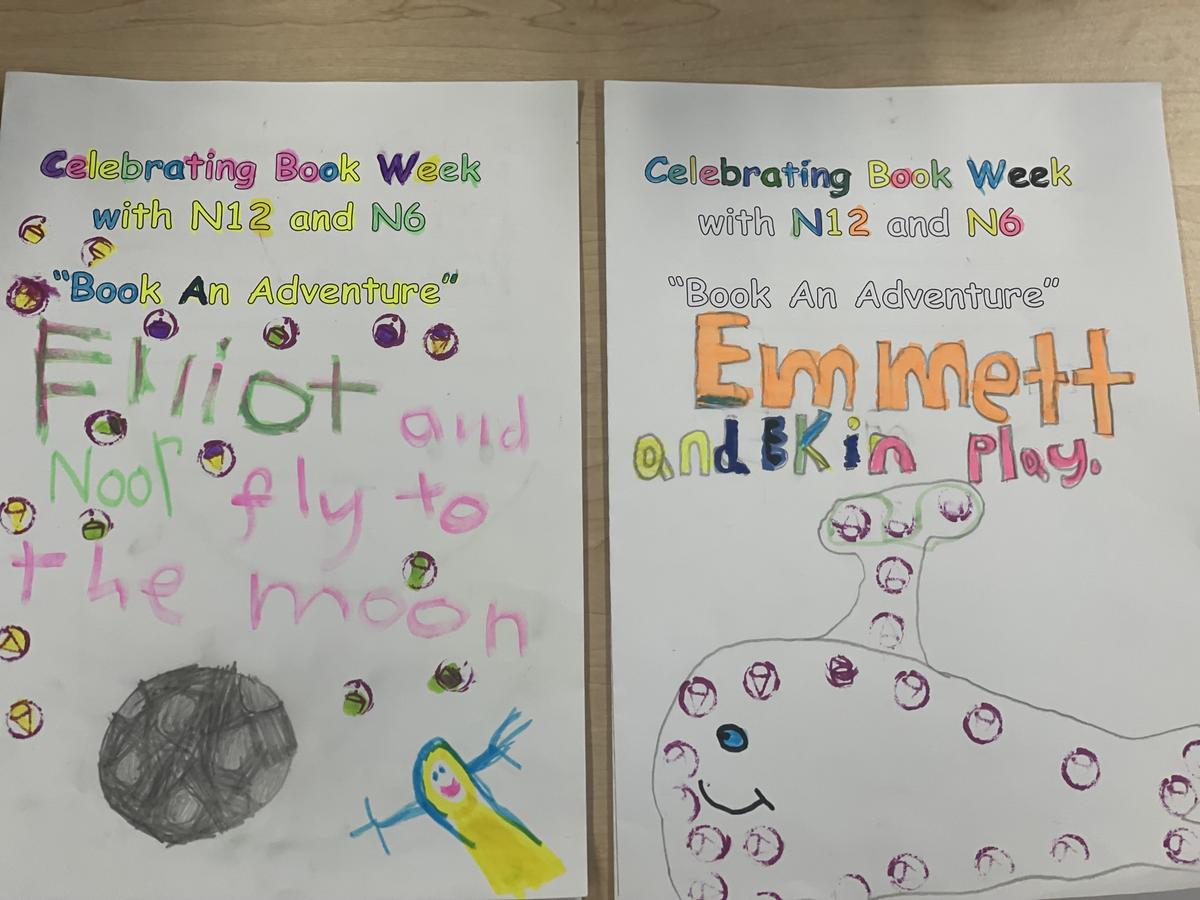 Celebrating Book Week
with N12 and N6
"Book An Adventure"
Elliot and
Noor fly to
the moon
Celebrating Book Week
with N12 and N6
"Book An Adventure"
Emmett
and EKin play.